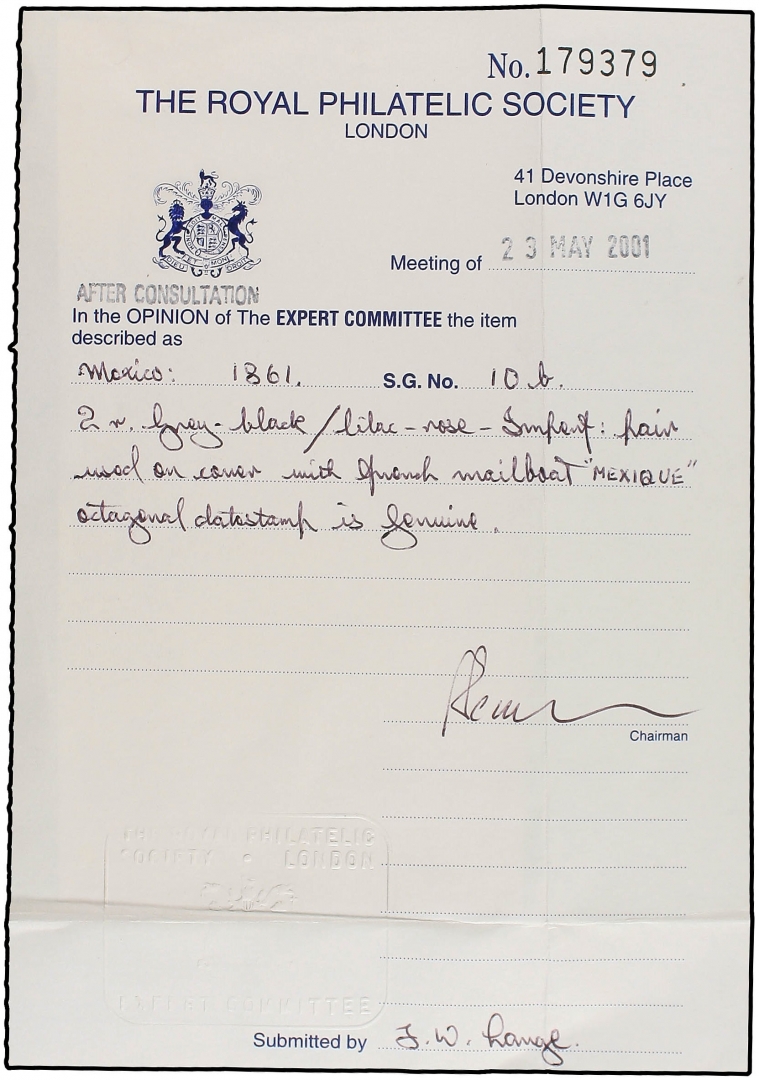 No. 179379
THE ROYAL PHILATELIC SOCIETY
LONDON
41 Devonshire Place
London W1G 6JY
Meeting of 23 MAY 2001
AFTER CONSULTATION
In the OPINION of The EXPERT COMMITTEE the item
described as
Mexico: 1861. S.G. No. 10 b.
2 r. Grey-black/lilac-rose - Imperf: pair
used on cover with French mailboat "MEXIQUE"
octagonal datestamp is Genuine.
Chairman
THE ROYAL PHILATELIC
SOCIETY • LONDON
EXPERT COMMITTEE
Submitted by F. W. Lange.